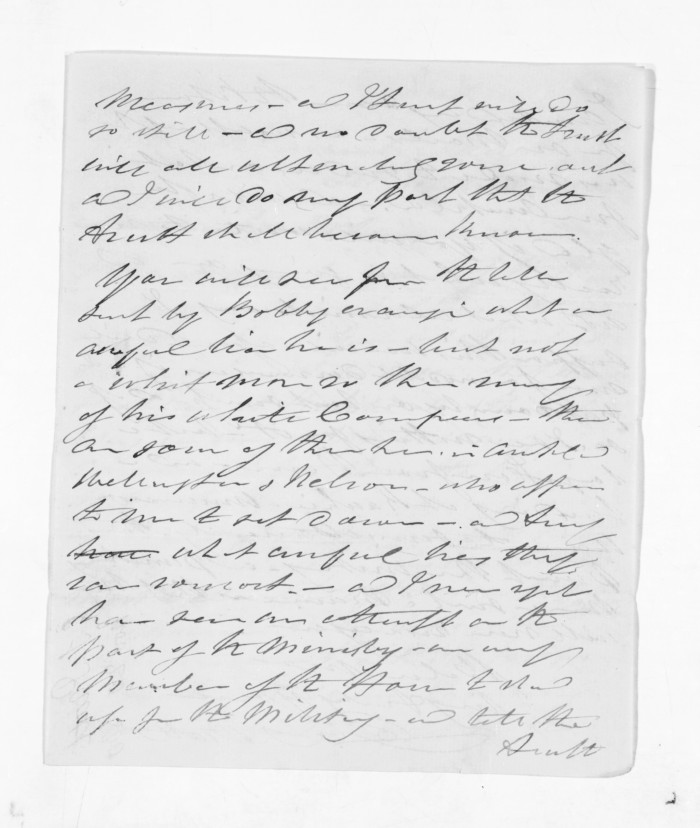 measures – and I trust will do
so still – and no doubt the truth
will all ultimately come out
and I will do my part that the
Truth shall become known.
You will see from the letter
sent by Bobby what an
awful liar he is – but not
a whit more so than many
of his white Compeers – there
are some of them here in Auckland
Wellington & Nelson – who appear
to me to set down – and
what awful lies they
can concoct – and I never yet
have seen an attempt on the
part of the Ministry – or any
Member of the House to
up for the Military – and tell the
Truth